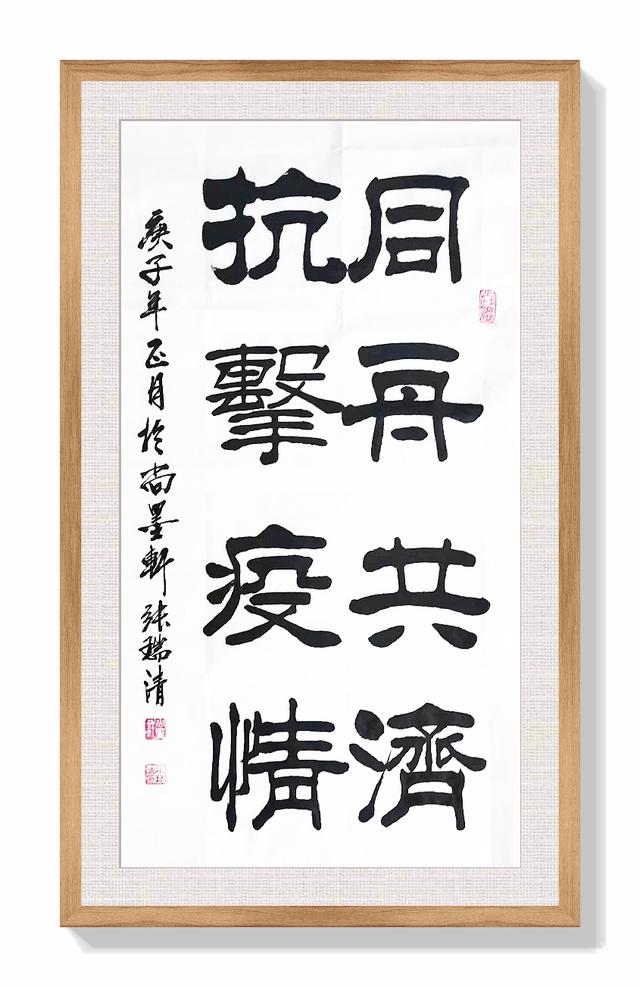 同舟共濟
抗擊疫情
庚子年正月於尚墨軒張瑞清